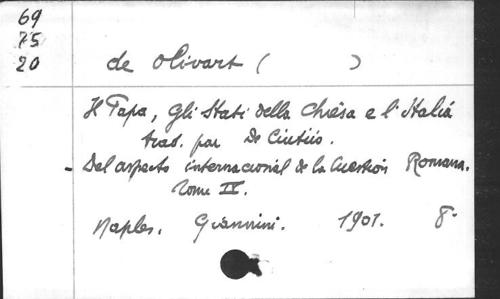 69
75
20
de Olivart ( )
Il Papa, gli Stati della Chièsa e l'Italiá
trad. par De Ciutiis.
- Del aspecto internacional de la Cuestión Romana.
Tome IV.
Naples. Giannini. 1901. 8º